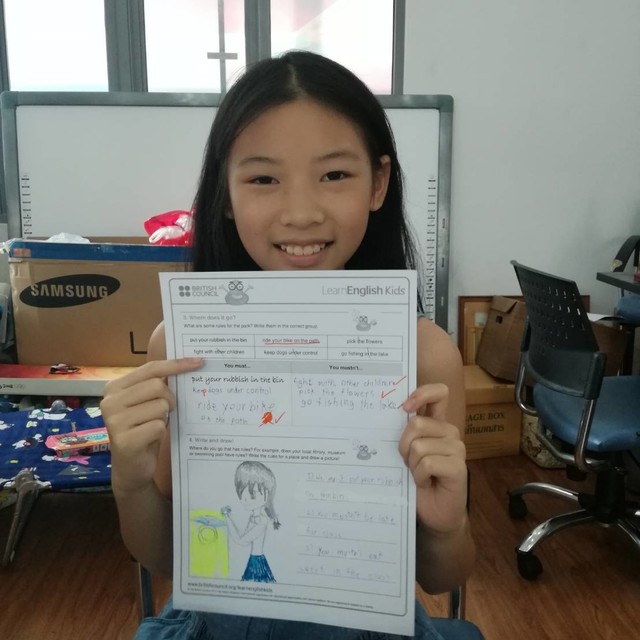 SAMSUNG
BRITISH COUNCIL
LearnEnglish Kids
3. Where does it go?
What are some rules for the park? Write them in the correct group.
put your rubbish in the bin
ride your bike on the path
pick the flowers
fight with other children
keep dogs under control
go fishing in the lake
You must...
You mustn't...
put your rubbish in the bin
keep dogs under control
ride your bike
on the path
fight with other children
pick the flowers
go fishing the lake
4. Write and draw!
Where do you go that has rules? For example, does your local library, museum
or swimming pool have rules? Write the rules for a place and draw a picture!
www.britishcouncil.org/learnenglishkids